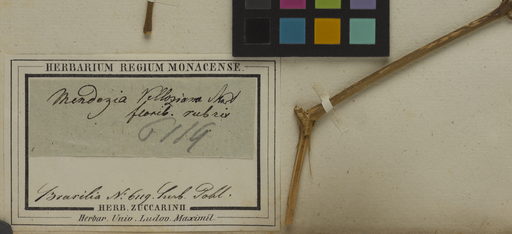 HERBARIUM REGIUM MONACENSE.
Mendozia Velloziana Mart
florib. rubris
6119
Brasilia No. 6119. herb. Pohl.
HERB. ZUCCARINII
Herbar. Univ. Ludov. Maximil.